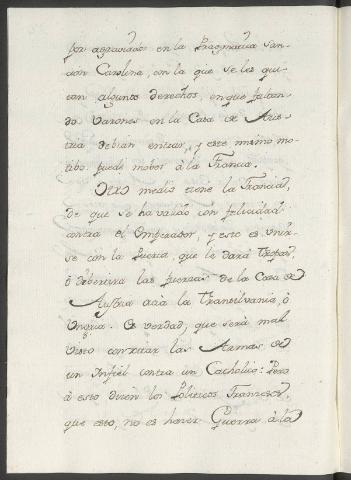 por agraviados en la Pragmatica San-
cion Carolina, con la que se les qui-
tan algunos derechos, en que faltan-
do Varones en la Casa de Aus-
tria debian entrar, y este mismo mo-
tibo puede mober à la Francia.
Otro medio tiene la Francia,
de que se ha valido con felicidad
contra el Emperador, y esto es unir-
se con la Puerta, que le dará Tropas,
ò dibertira las fuerzas de la Casa de
Austria acia la Transilvania, ò
Ungria. Es verdad, que será mal
visto concitar las Armas de
un Infiel contra un Catholico: Pero
à esto diren los Politicos Franceses,
que esto, no es haver Guerra à la